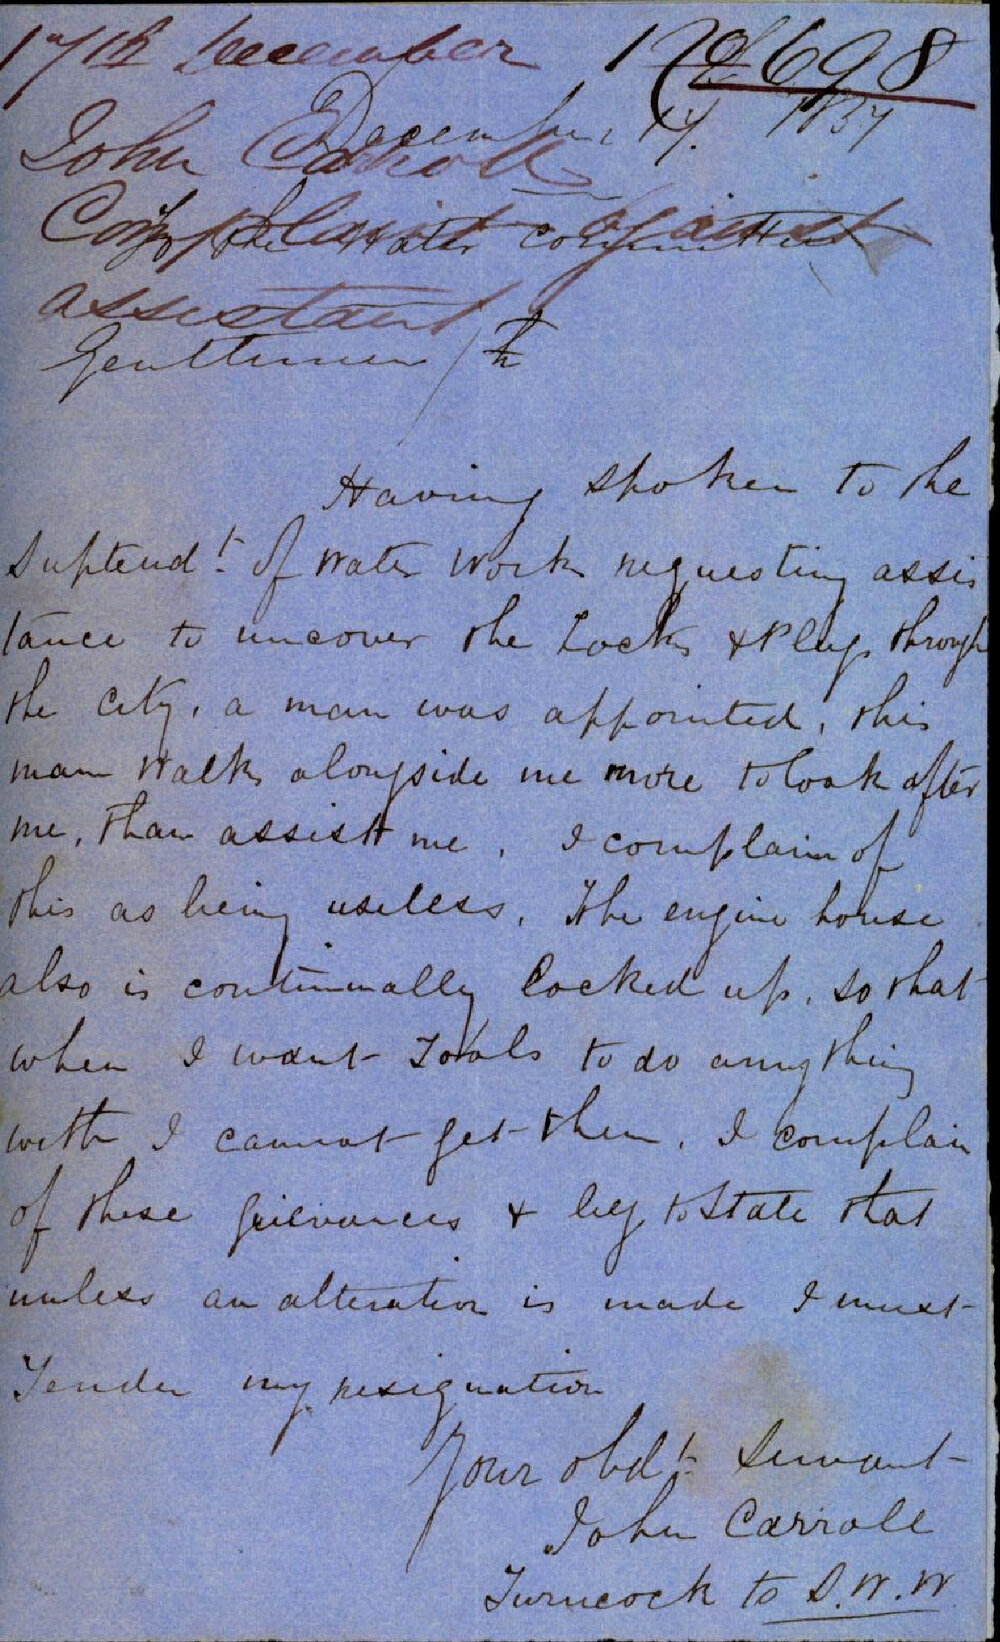 17th December 12/698
December 17. 1857
John Carroll
Complaint against
To the Water Committee
assistant
Gentlemen
Having spoken to the
Suptendt. of Water Works requesting assis
tance to uncover the Locks & Plugs through
the city, a man was appointed, this
man Walks alongside me more to look after
me, than assist me, I complain of
this as being useless, The engine house
also is continually locked up, so that
when I want Tools to do anything
with I cannot get them, I complain
of these grievances & beg to State that
unless an alteration is made I must
Tender my resignation
Your obdt. Servant
John Carroll
Turncock to S.W.W